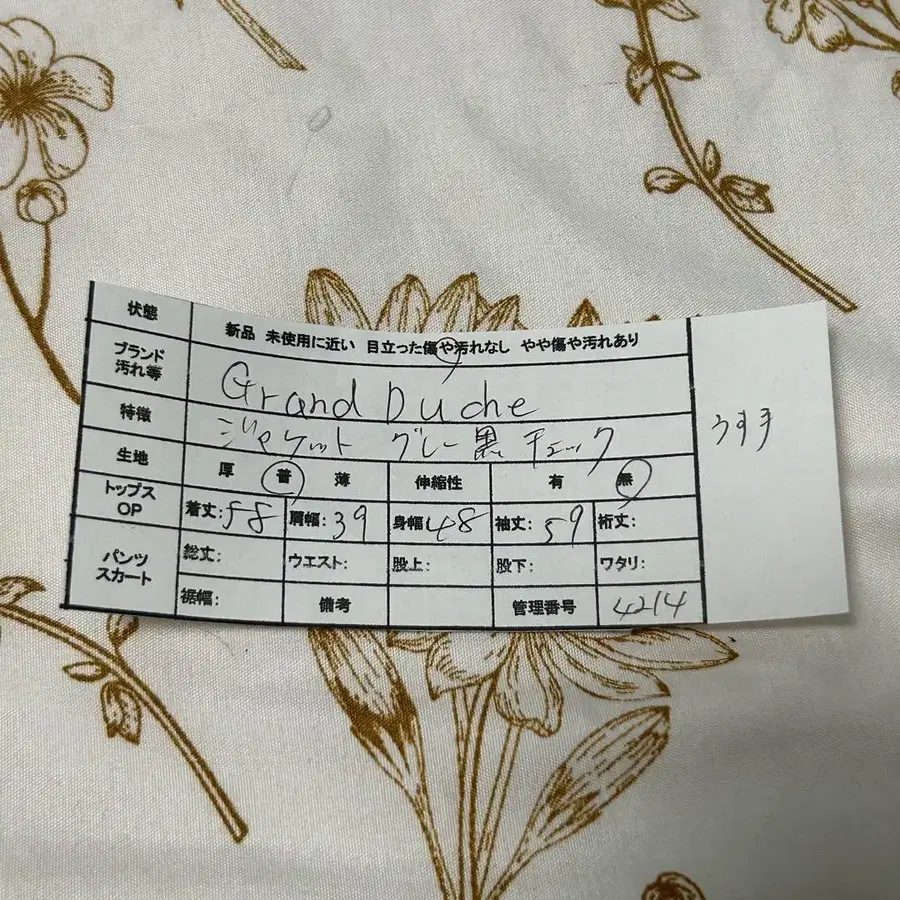 状態 新品 未使用に近い 目立った傷や汚れなし やや傷や汚れあり
ブランド 汚れ等 Grand Duche
特徴 ジャケット グレー黒チェック
うすす
生地 厚 普 薄 伸縮性 有 無
トップス OP 着丈:58 肩幅:39 身幅48 袖丈:59 裄丈:
パンツ スカート 総丈: ウエスト: 股上: 股下: ワタリ:
裾幅: 備考 管理番号 4214